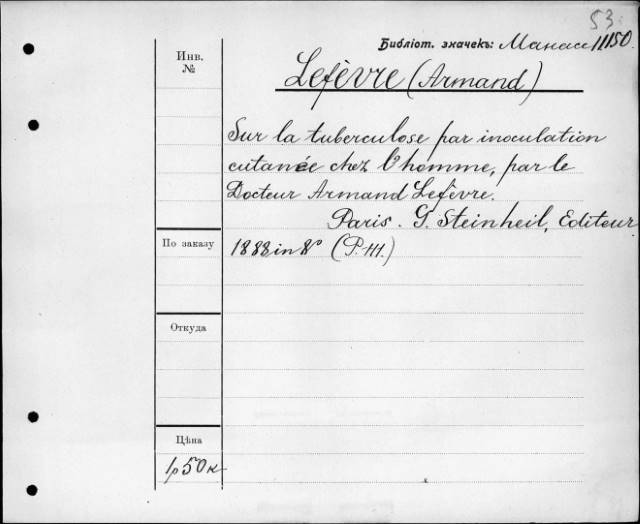 53
Библіот. значекъ: Манас 11150
Инв.
№
Lefèvre (Armand)
Sur la tuberculose par inoculation
cutanée chez l'homme, par le
Docteur Armand Lefèvre.
Paris. G. Steinheil, Editeur
По заказу
1888 in 8º (P. III.)
Откуда
Цѣна
1р 50 к